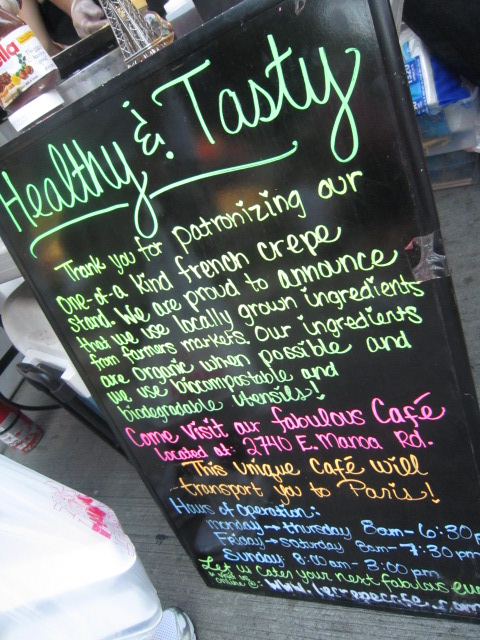 lla
Healthy & Tasty
Thank you for patronizing our
one-of-a kind french crepe
stand. We are proud to announce
that we use locally grown ingredients
from farmers markets. Our ingredients
are organic when possible and
we use biocompostable and
biodegradable utensils!
Come visit our fabulous Café
located at: 2740 E. Manoa Rd.
This unique Café will
transport you to Paris!
Hours of operation:
monday → thursday 8am - 6:30 p
Friday → saturday 8am - 7:30 pm
Sunday: 8:00 am - 3:00 pm
Let us cater your next fabulous eve
online @: